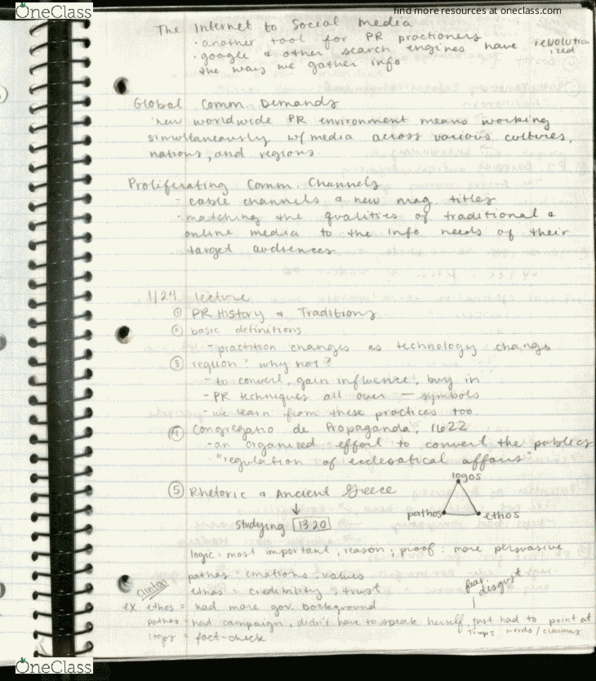 OneClass
find more resources at oneclass.com
The Internet to Social media
· another tool for PR practioners
· google & other search engines have revolutionized
the ways we gather info
Global Comm Demands
· new worldwide PR environment means working
simultaneously w/ media across various cultures,
nations, and regions
Proliferating Comm Channels
- cable channels & new mag titles
- matching the qualities of traditional &
online media to the info needs of their
target audiences
1/24 lecture
① PR History & Traditions
② basic definitions
- practition changes as technology changes
③ religion: why not?
- to convert, gain influence, buy in
- PR techniques all over — symbols
- we learn from these practices too
④ Congregatio de Propaganda, 1622
- an organized effort to convert the publics
- "regulation of ecclesiatical affairs"
⑤ Rhetoric & Ancient Greece
logos
pathos
ethos
↓
studying 1320
logic: most important, reason, proof: more persuasive
pathos: emotions, values
ethos: credibility, trust
Clinton
fear, disgust
ex. ethos = had more gov. background
pathos = had campaign, didn't have to speak herself, just had to point at
Trump's words/
logos = fact-check
OneClass